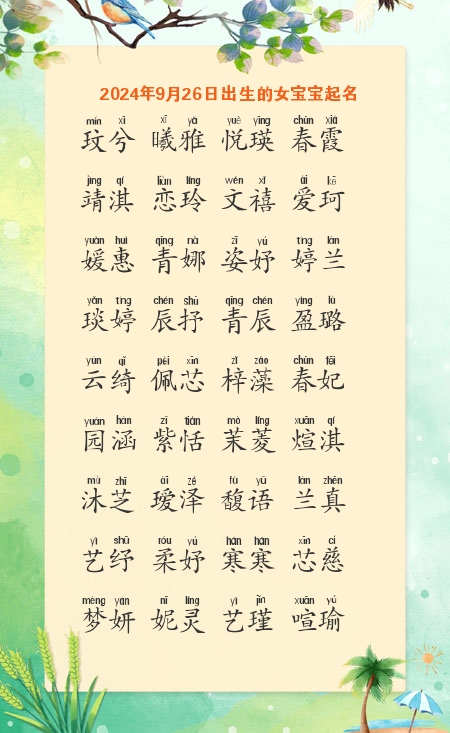 2024年9月26日出生的女宝宝起名
mín xī xī yǎ yuè yīng chūn xiá
玟兮 曦雅 悦瑛 春霞
jìng qí liàn líng wén xǐ ài kē
靖淇 恋玲 文禧 爱珂
yuàn huì qīng nà zī yú tíng lán
媛惠 青娜 姿妤 婷兰
yǎn tíng chén shū qīng chén yíng lù
琰婷 辰抒 青辰 盈璐
yún qǐ pèi xīn zǐ zǎo chūn fēi
云绮 佩芯 梓藻 春妃
yuán hán zǐ tián mò líng xuān qí
园涵 紫恬 茉菱 煊淇
mù zhī ài zé fù yǔ lán zhēn
沐芝 瑷泽 馥语 兰真
yì shū róu yú hán hán xīn cí
艺纾 柔妤 寒寒 芯慈
mèng yán nī líng yì jǐn xuān yú
梦妍 妮灵 艺瑾 喧瑜